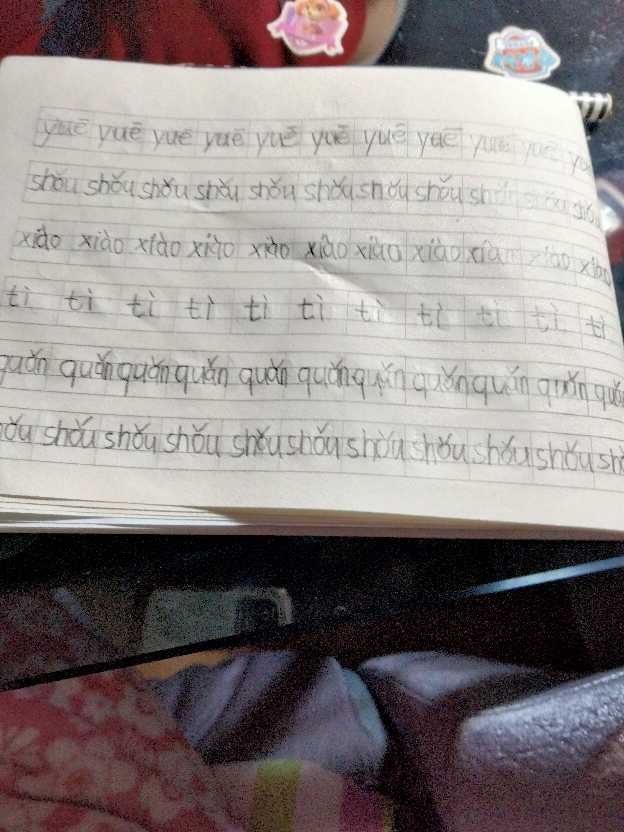 yuē yuē yuē yuē yuē yuē yuē yuē yuē yuē
shǒu shǒu shǒu shǒu shǒu shǒu shǒu shǒu
xiào xiào xiào xiào xiào xiào xiào xiào xiào xiào
tì tì tì tì tì tì tì tì tì tì tì
quǎn quǎn quǎn quǎn quǎn quǎn quǎn quǎn quǎn
shǒu shǒu shǒu shǒu shǒu shǒu shǒu shǒu shǒu